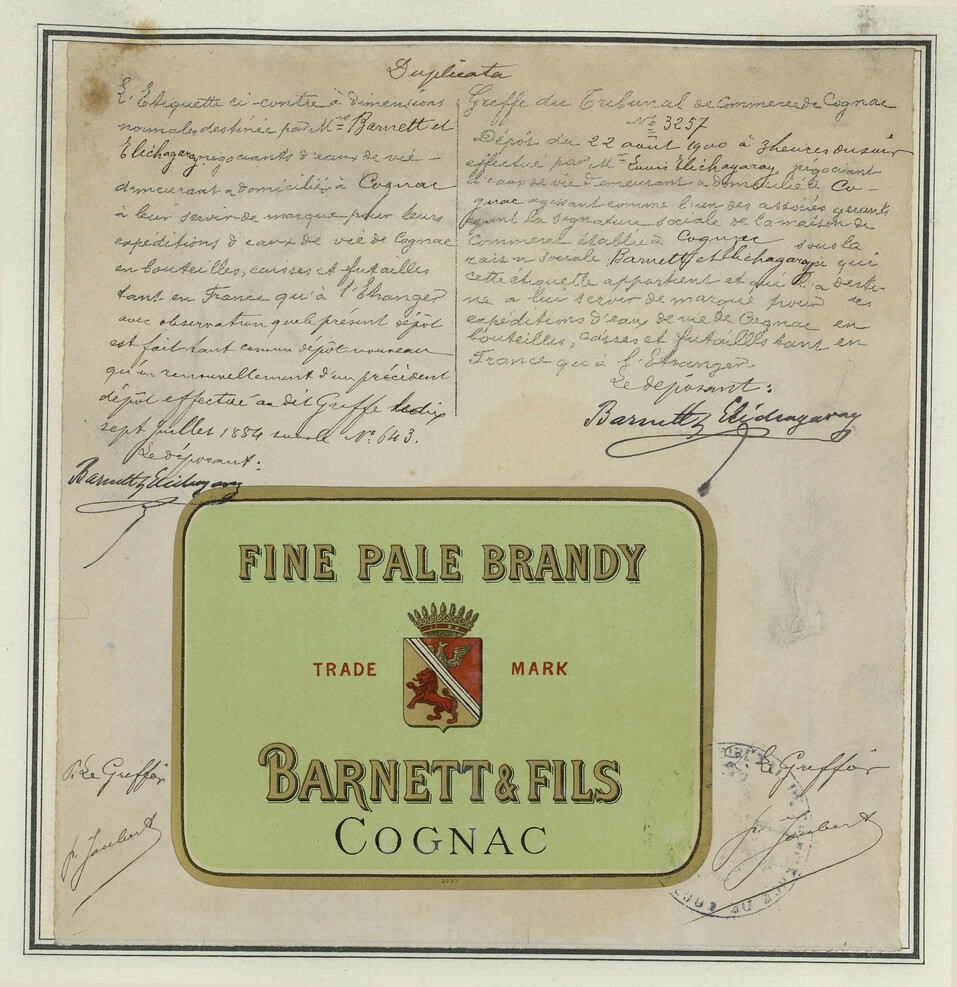 Duplicata
L'Etiquette ci-contre à dimensions
normales destinée par Mrs Barnett et
Elichagaray négociants d'eaux de vie -
demeurant & domiciliés à Cognac
à leur servir de marque pour leurs
expéditions d'eaux de vie de Cognac
en bouteilles, caisses et futailles
tant en France qu'à l'Etranger
avec observation que le présent dépôt
est fait tant comme dépôt nouveau
qu'en renouvellement d'un précédent
dépôt effectué au dit Greffe le dix
sept Juillet 1884 sous le No 643.
Le déposant:
Barnett & Elichagaray
Greffe du Tribunal de Commerce de Cognac
No 3257
Dépôt du 22 août 1900 à 3 heures du soir
effectué par Mr Louis Elichagaray, négociant
d'eaux de vie demeurant & domicilié à Co-
gnac agissant comme l'un des associés gérants
ayant la signature sociale de la maison de
Commerce établie à Cognac sous la
raison sociale Barnett et Elichagaray à qui
cette étiquette appartient et qui l'a desti-
née à lui servir de marque pour ses
expéditions d'eaux de vie de Cognac en
bouteilles, caisses et futailles tant en
France qu'à l'Etranger
Le déposant:
Barnett & Elichagaray
FINE PALE BRANDY
TRADE MARK
BARNETT & FILS
COGNAC
P. Le Greffier
P. Le Greffier
J. Joubert
J. Joubert